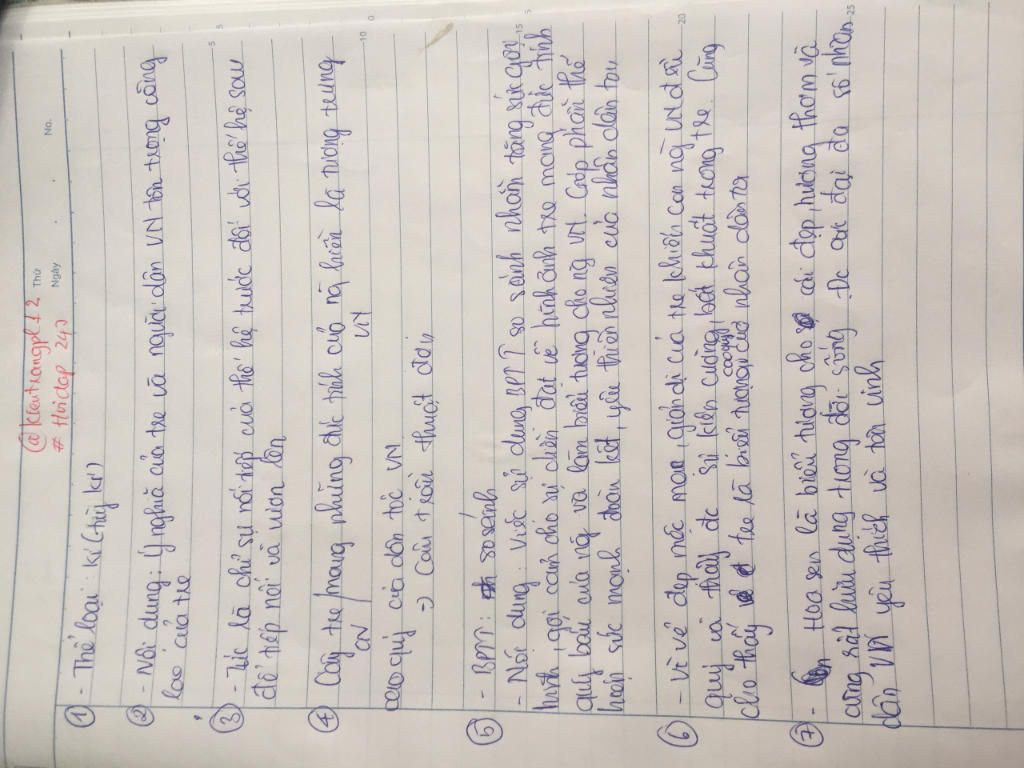 @kieutrangpl12
# Hoidap 247
Thứ
Ngày
No.
① - Thể loại: Kí (tùy kí)
② - Nội dung: Ý nghĩa của tre và người dân VN tôn trọng công
lao của tre
③ - Tức là chỉ sự nối tiếp của thế hệ trước đối với thế hệ sau
để tiếp nối và vươn lên
④ Cây tre / mang những đức tính của ng hiền là tượng trưng
CN VN
cao quý của dân tộc VN
=> Câu trần thuật đơn
⑤ - BPTT: so sánh
- Nội dung: việc sử dụng BPTT so sánh nhằm tăng sức gợi
hình, gợi cảm cho sự diễn đạt về hình ảnh tre mang đức tính
quý báu của ng và làm biểu tượng cho ng VN. Góp phần thể
hiện sức mạnh đoàn kết, yêu thiên nhiên của nhân dân ta.
⑥ - Vì vẻ đẹp mộc mạc, giản dị của tre khiến con ng VN đều
quý và thấy đc sự kiên cường, bất khuất trong tre. Cũng
cho thấy tre là biểu tượng của nhân dân ta
cao quý
⑦ - Hoa sen là biểu tượng cho cái đẹp, hương thơm và
cũng rất hữu dụng trong đời sống. Đc đại đa số nhân
dân VN yêu thích và tôn vinh
5
5
0
10
15
5
20
25